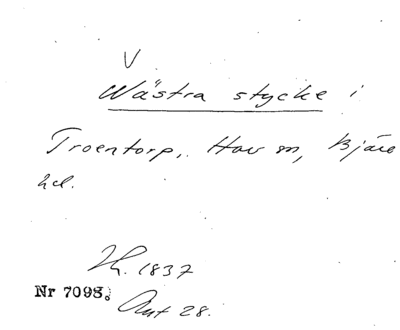 V
Wästra stycke i
Troentorp, Hov sn, Bjäre
hd.
Lh. 1837
Nr 7098. Akt 28.